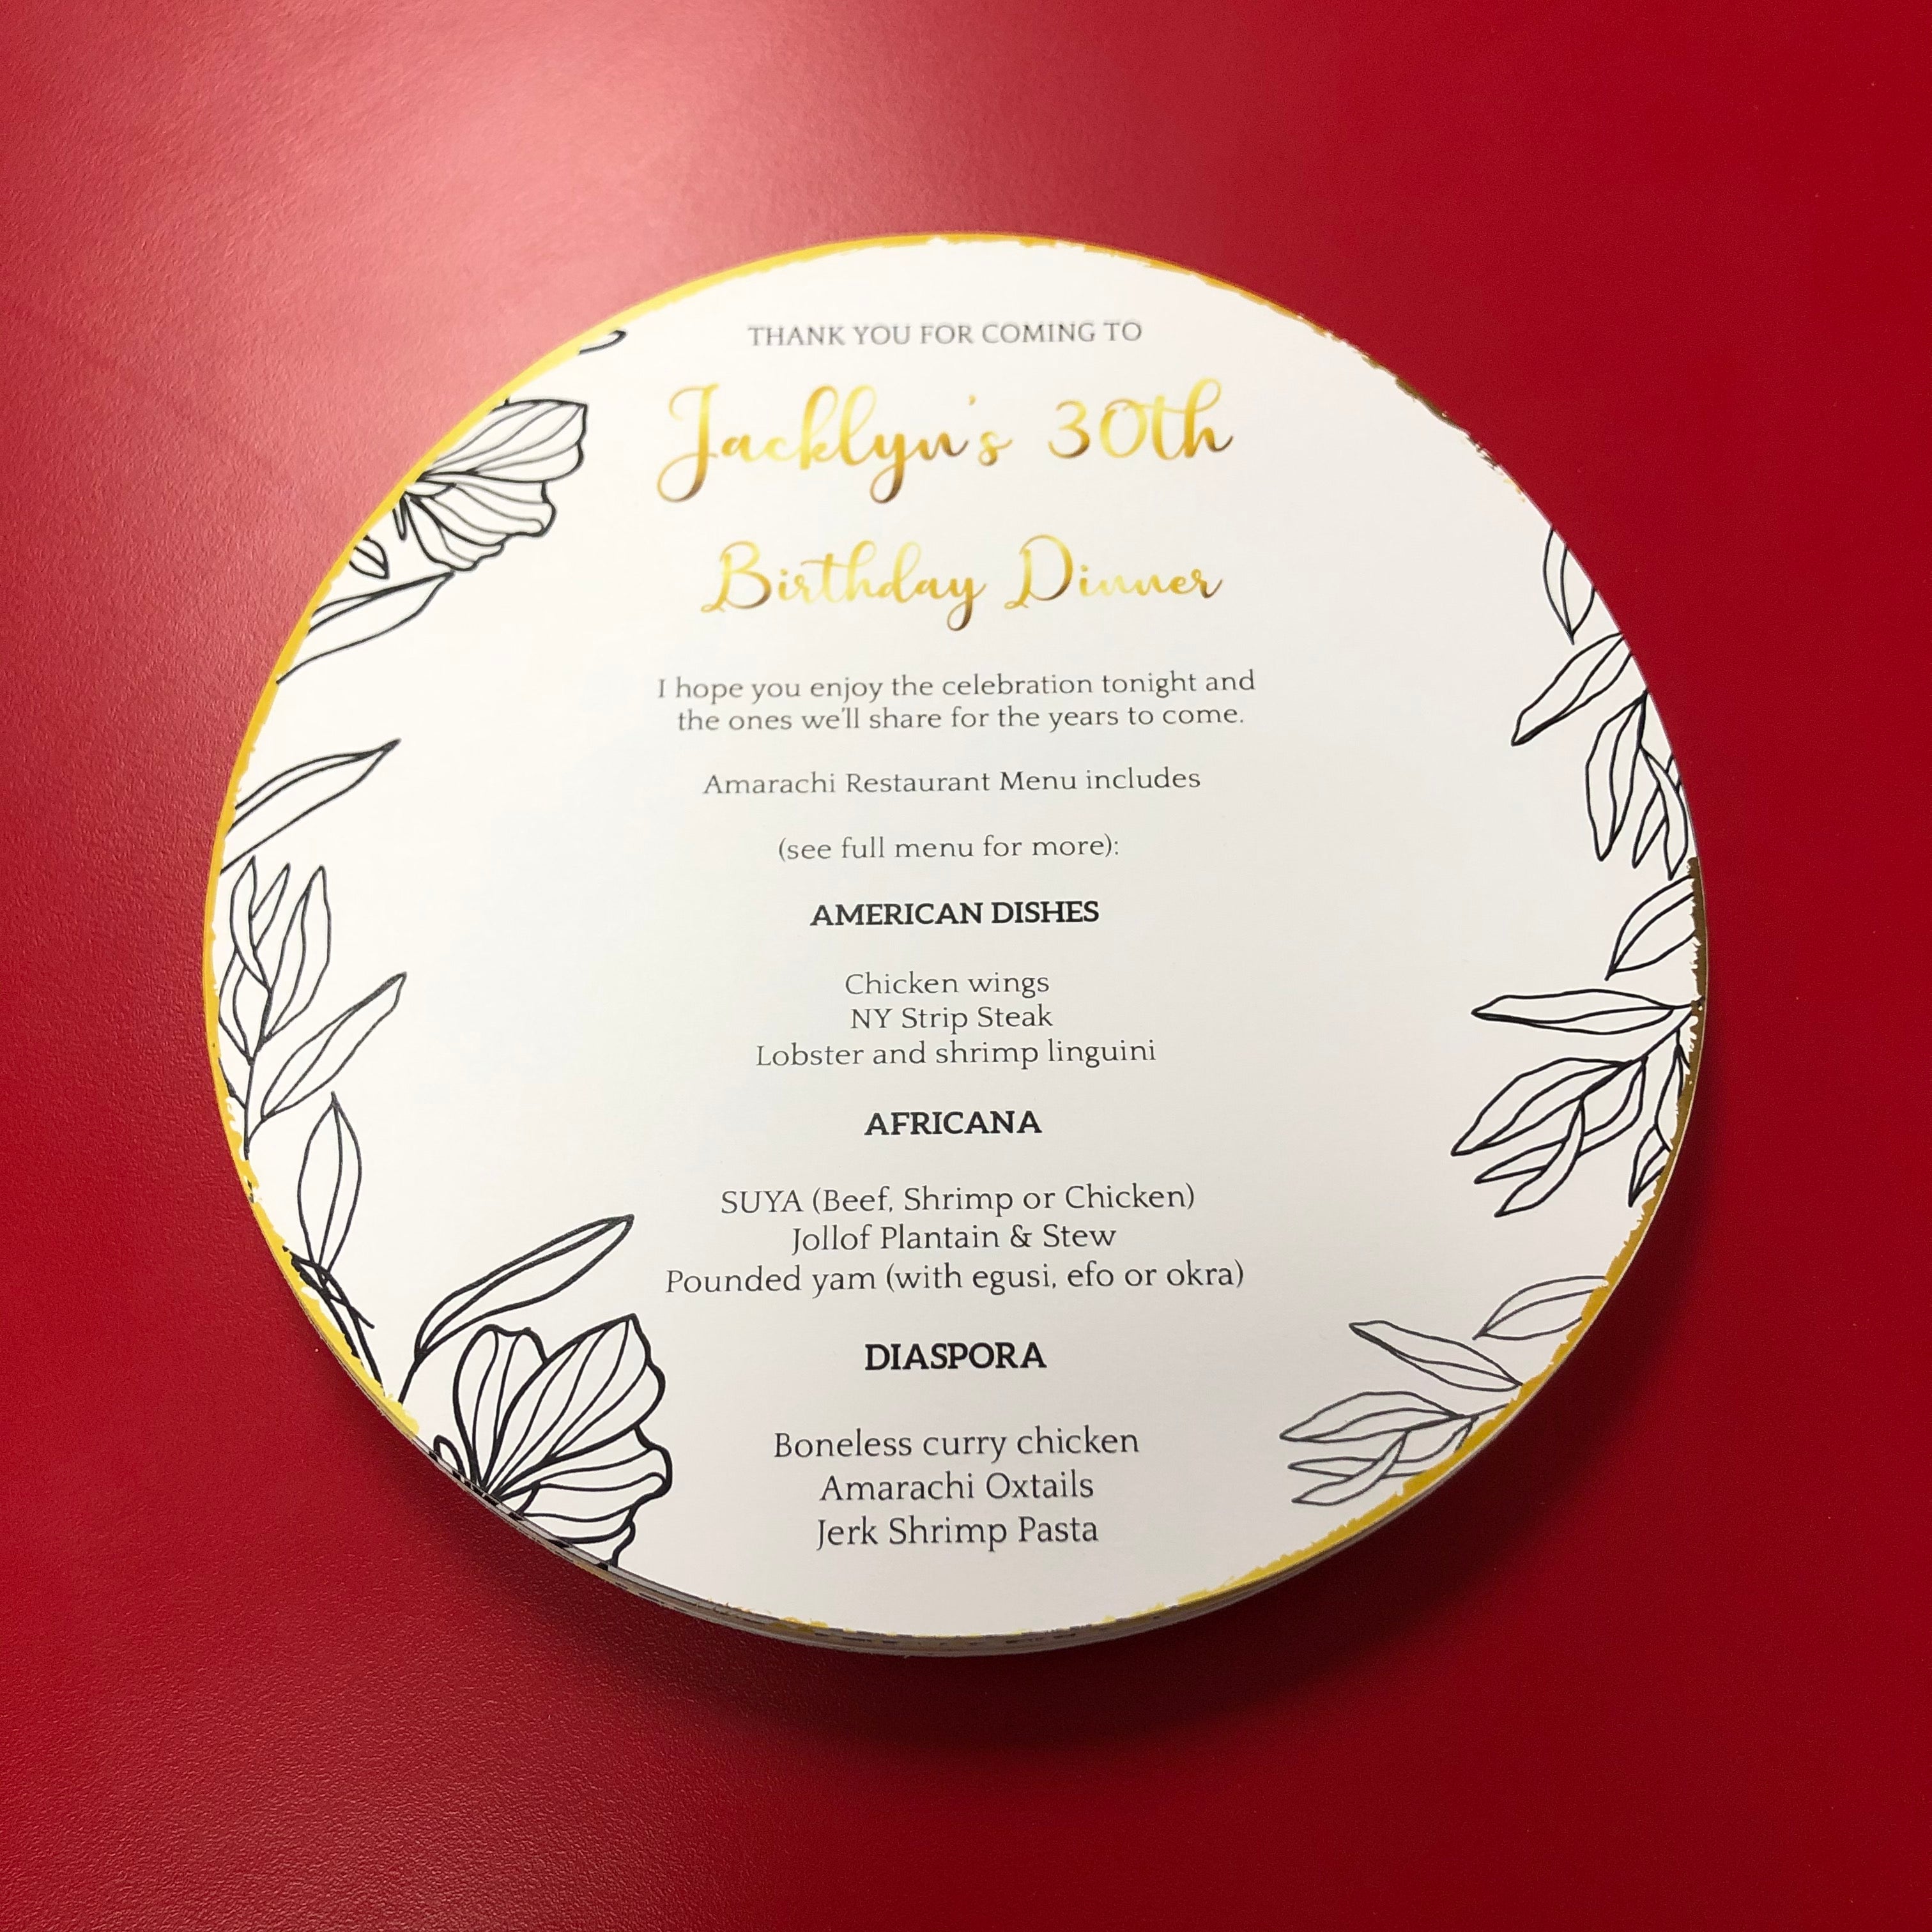 THANK YOU FOR COMING TO
Jacklyn's 30th
Birthday Dinner
I hope you enjoy the celebration tonight and
the ones we'll share for the years to come.
Amarachi Restaurant Menu includes
(see full menu for more):
AMERICAN DISHES
Chicken wings
NY Strip Steak
Lobster and shrimp linguini
AFRICANA
SUYA (Beef, Shrimp or Chicken)
Jollof Plantain & Stew
Pounded yam (with egusi, efo or okra)
DIASPORA
Boneless curry chicken
Amarachi Oxtails
Jerk Shrimp Pasta